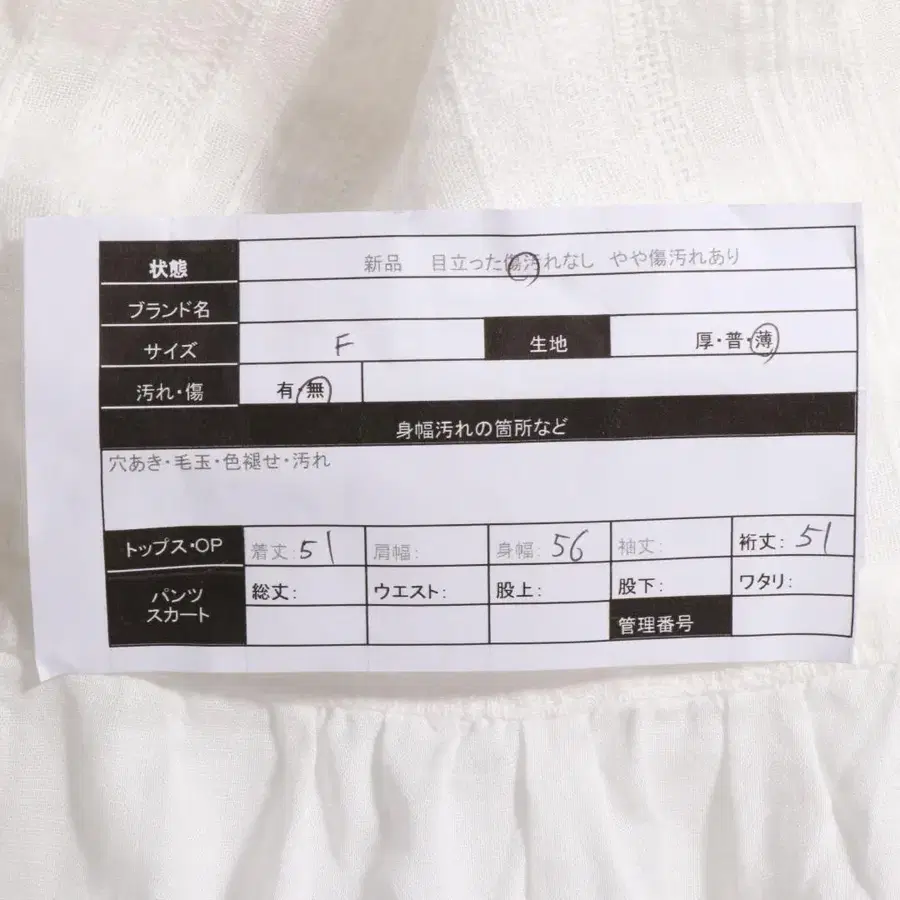 状態 新品 目立った傷汚れなし やや傷汚れあり
ブランド名
サイズ F 生地 厚・普・薄
汚れ・傷 有・無
身幅汚れの箇所など
穴あき・毛玉・色褪せ・汚れ
トップス・OP 着丈:51 肩幅: 身幅:56 袖丈: 裄丈:51
パンツ スカート 総丈: ウエスト: 股上: 股下: ワタリ:
管理番号